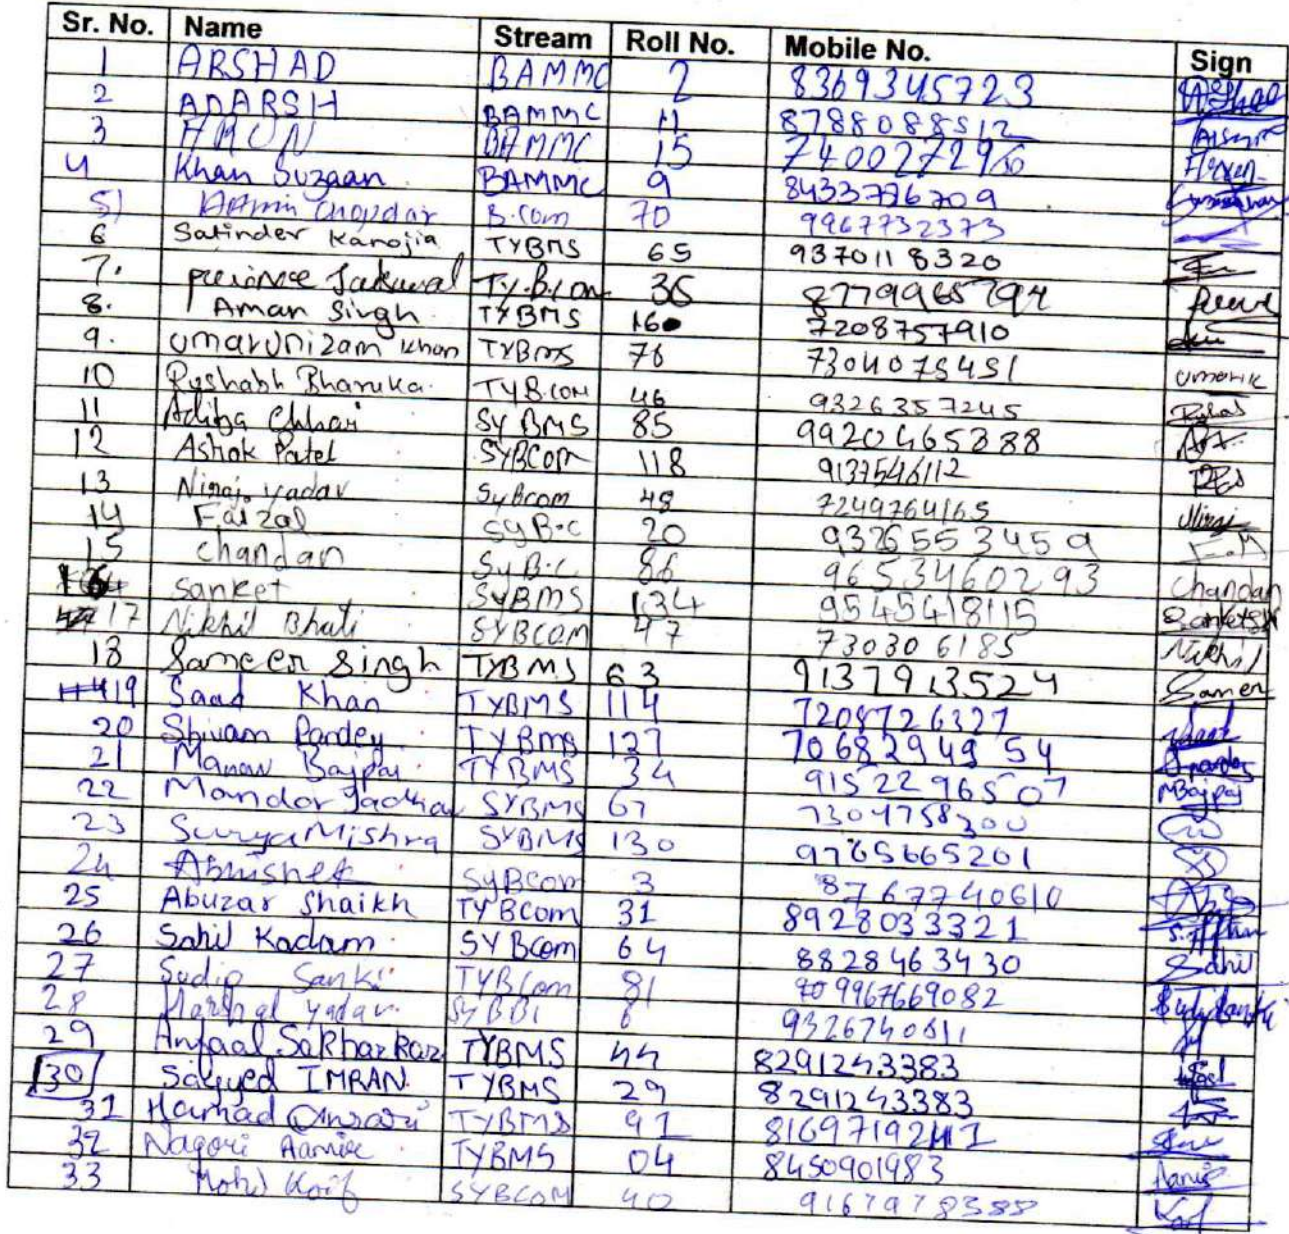 Sr. No. Name Stream Roll No. Mobile No. Sign
1 ARSHAD BAMMC 2 8369345723
2 ADARSH BAMMC 11 8788088512
3 BAMMC 15 7400272960
4 Khan Suzaan BAMMC 9 8433776709
5) Aamin Chopdar B.Com 70 9967732373
6 Satinder Kanojia TYBMS 65 9370118320
7. Jaiswal TY.B.Com 36 8779965794
8. Aman Singh TYBMS 160 7208757910
9. Umarunizam Khan TYBMS 76 7304075451 Umarnk
10 Rushabh Bharuka. TYB.COM 46 9326357245
11 Aditya Chhai SYBMS 85 9920465888
12 Ashok Patel SYBCOM 118 9137546112
13 Niraj. yadav SyBcom 48 7249764165 Niraj
14 Faizal SyB.c 20 9326553459 F.M
15 chandan SyB.c 86 9653460293 Chandan
16 Sanket SYBMS 134 9545418115 Sanket
17 Nikhil Bhati SYBCOM 47 730306185 Nikhil
18 Sameer Singh TYBMS 63 9137913524 Sameer
19 Saad Khan TYBMS 114 7208726327 Saad
20 Shivam Pandey TYBMS 127 7068294954
21 Manav Bajpai TYBMS 34 9152296507 MBajpai
22 Mandar Jadhav SYBMS 67 7304758300
23 Surya Mishra SYBMS 130 9765665201
24 Abhishek SyBCom 3 8767740610
25 Abuzar Shaikh TYBCom 31 8928033321
26 Sahil Kadam SYBcom 64 8828463430 Sahil
27 Sudip Sanki TYBCom 81 9967669082
28 Harshal yadav SyBBI 6 9326740611
29 Anfaal Sakharkar TYBMS 44 8291243383
30 Sayyed IMRAN TYBMS 29 8291243383
31 Hammad Ansari TYBMS 91 8169719241
32 Nagori Aamir TYBMS 04 8450901983 Aamir
33 Mohd Kaif SYBCOM 40 9167978388 Kaif